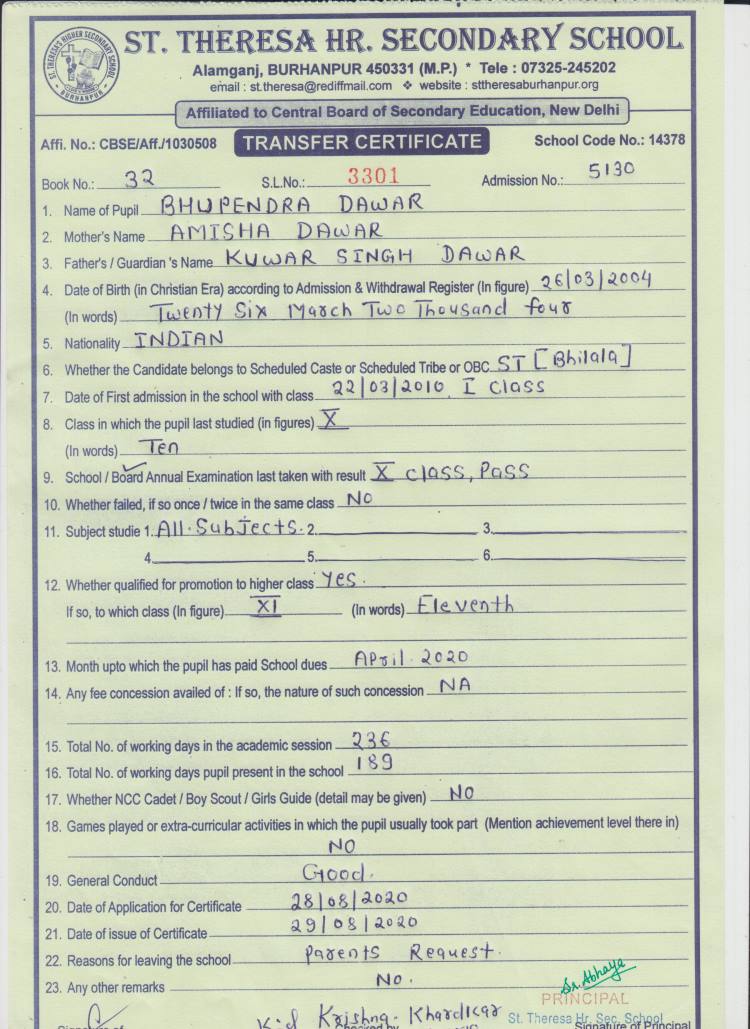 ST. THERESA'S HIGHER SECONDARY SCHOOL
BURHANPUR
ST. THERESA HR. SECONDARY SCHOOL
Alamganj, BURHANPUR 450331 (M.P.) * Tele : 07325-245202
email : st.theresa@rediffmail.com ❖ website : sttheresaburhanpur.org
Affiliated to Central Board of Secondary Education, New Delhi
Affi. No.: CBSE/Aff./1030508 TRANSFER CERTIFICATE School Code No.: 14378
Book No.: 32 S.L.No.: 3301 Admission No.: 5130
1. Name of Pupil BHUPENDRA DAWAR
2. Mother's Name AMISHA DAWAR
3. Father's / Guardian 's Name KUWAR SINGH DAWAR
4. Date of Birth (in Christian Era) according to Admission & Withdrawal Register (In figure) 26/03/2004
(In words) Twenty Six March Two Thousand four
5. Nationality INDIAN
6. Whether the Candidate belongs to Scheduled Caste or Scheduled Tribe or OBC ST [Bhilala]
7. Date of First admission in the school with class 22/03/2010, I class
8. Class in which the pupil last studied (in figures) X
(In words) Ten
9. School / Board Annual Examination last taken with result X class, Pass
10. Whether failed, if so once / twice in the same class NO
11. Subject studie 1. All Subjects. 2. 3.
4. 5. 6.
12. Whether qualified for promotion to higher class Yes.
If so, to which class (In figure) XI (In words) Eleventh
13. Month upto which the pupil has paid School dues April. 2020
14. Any fee concession availed of : If so, the nature of such concession NA
15. Total No. of working days in the academic session 236
16. Total No. of working days pupil present in the school 189
17. Whether NCC Cadet / Boy Scout / Girls Guide (detail may be given) NO
18. Games played or extra-curricular activities in which the pupil usually took part (Mention achievement level there in)
NO
19. General Conduct Good.
20. Date of Application for Certificate 28/08/2020
21. Date of issue of Certificate 29/08/2020
22. Reasons for leaving the school Parents Request.
23. Any other remarks No.
Sr. Abhaya
PRINCIPAL
Krishna. Khardikar St. Theresa Hr. Sec. School
Signature of Checked by Signature of Principal